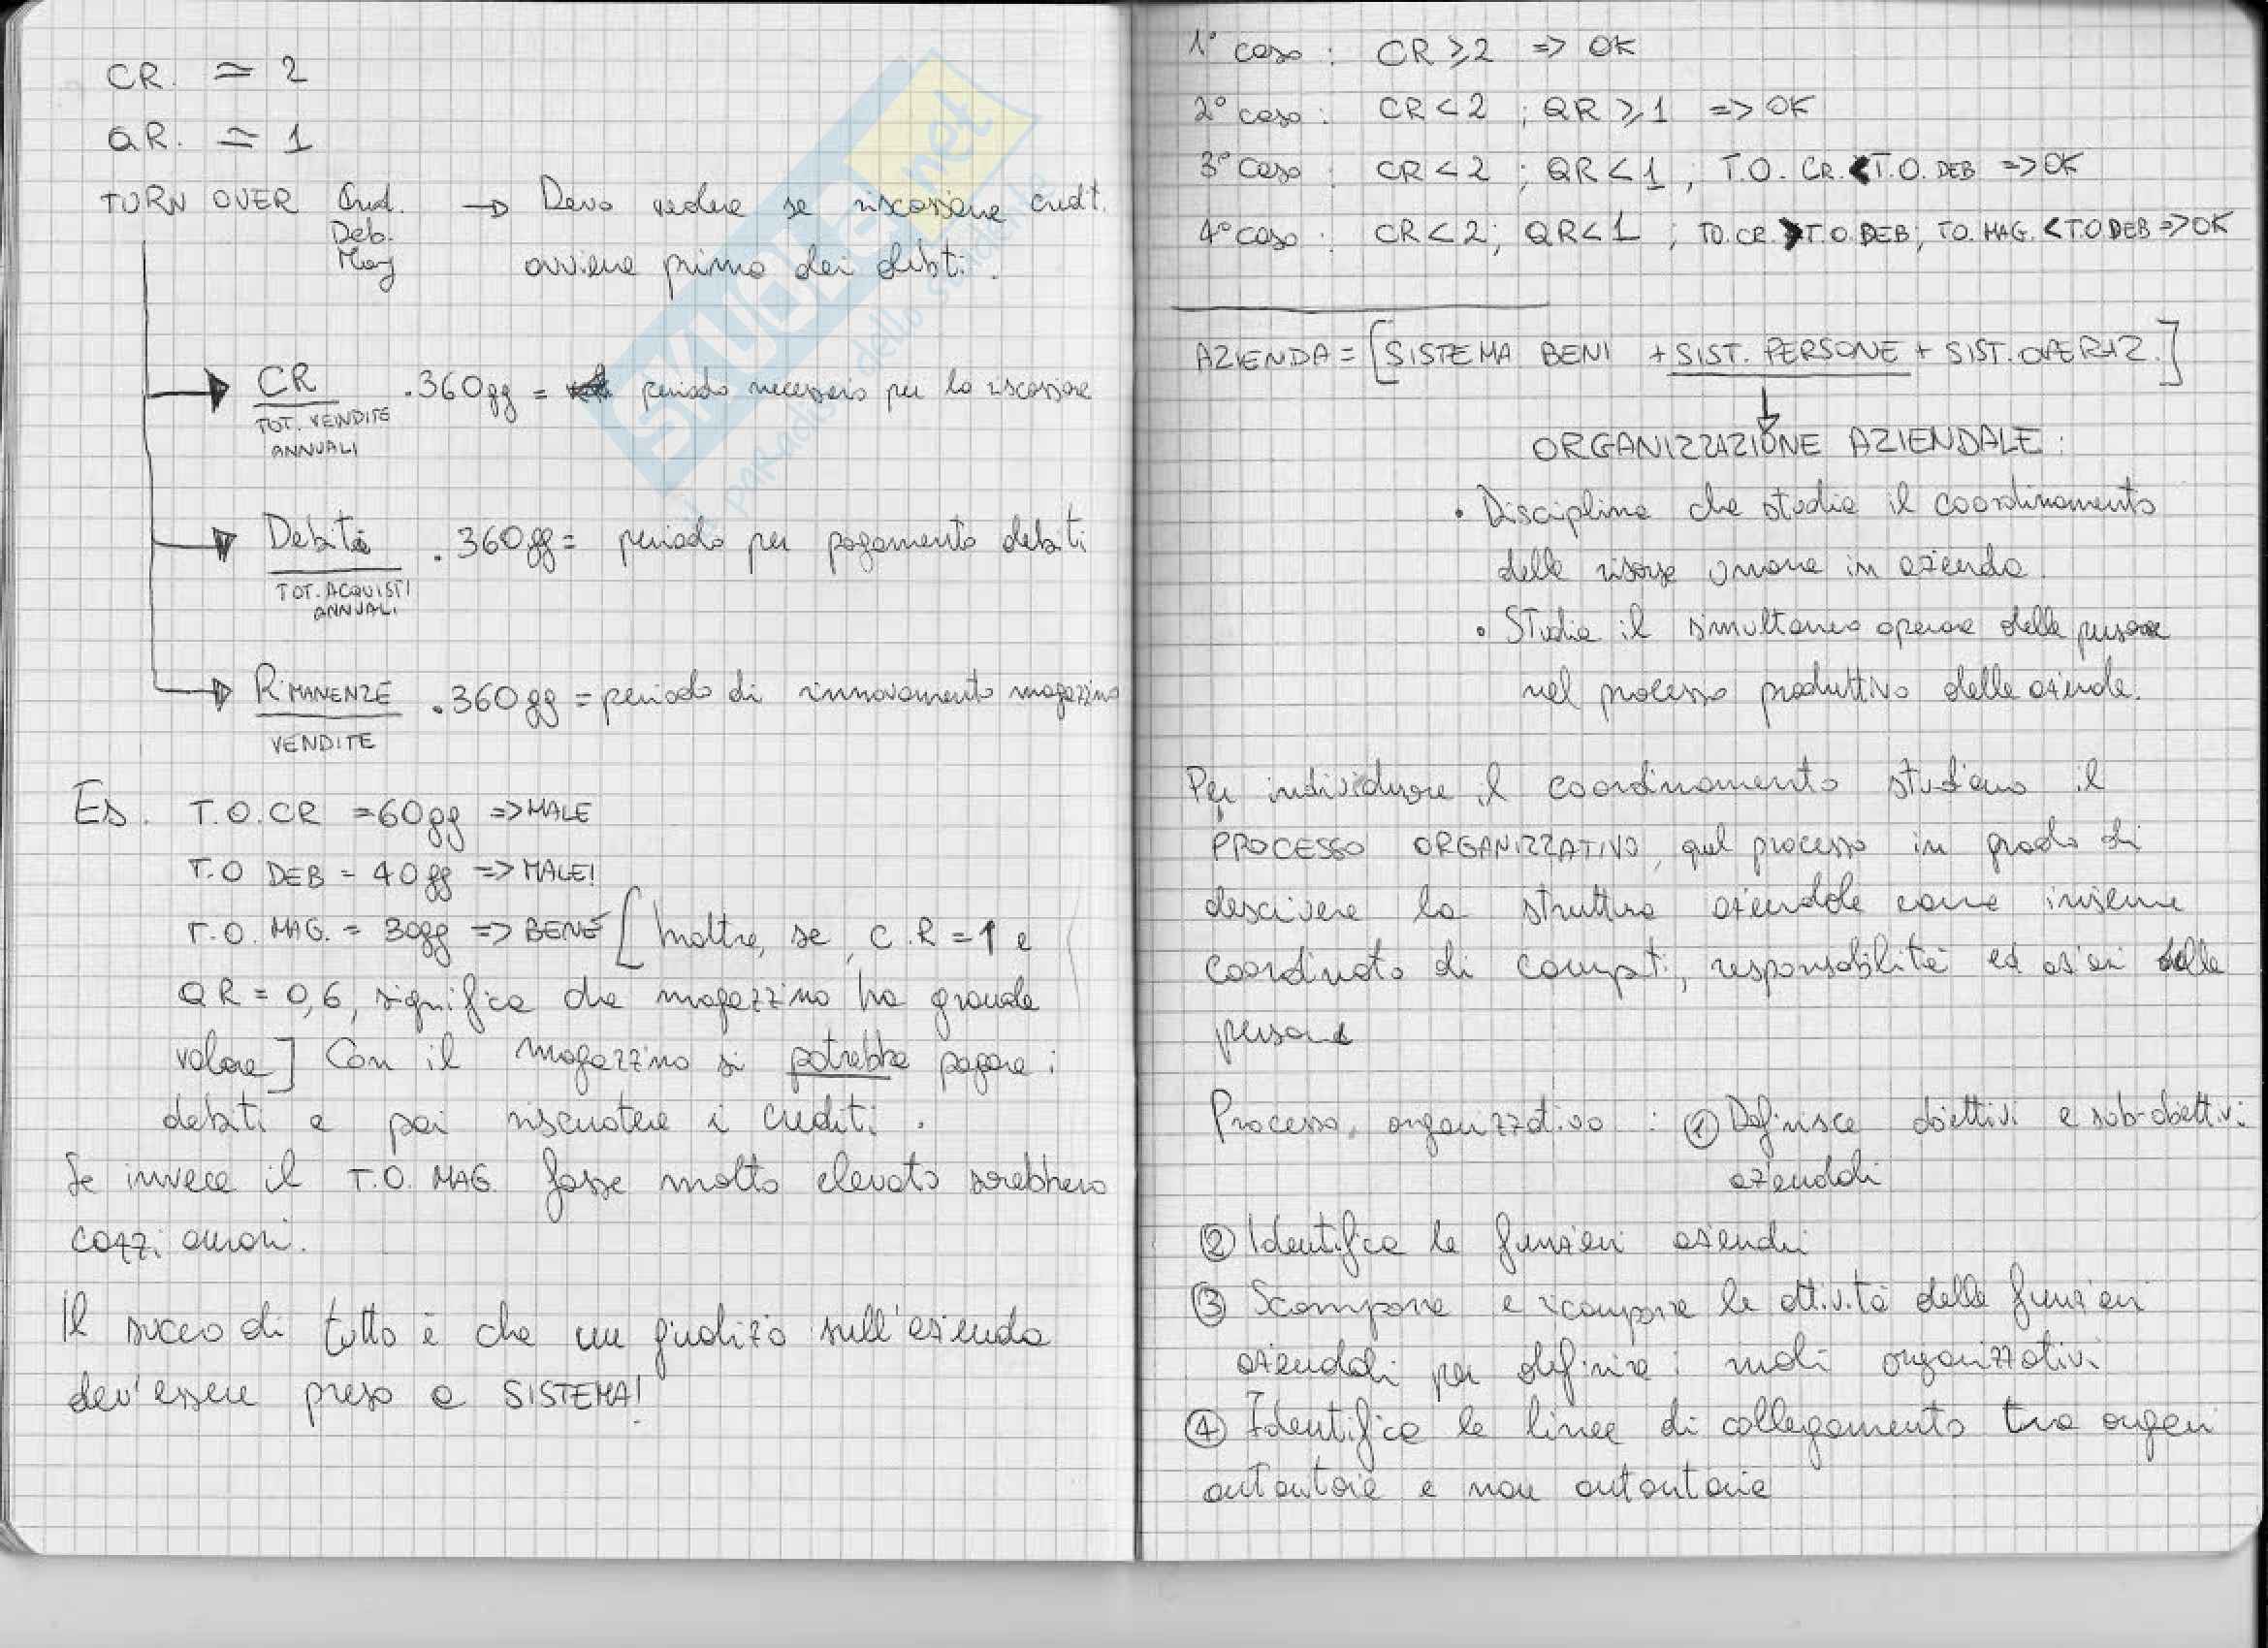 CR. ≃ 2
QR. ≃ 1
TURN OVER Cred. → Devo vedere se riscossione credt.
Deb.
Mag
avviene prima dei debiti.
CR .360gg = periodo necessario per la riscossione
TOT. VENDITE
ANNUALI
Debiti .360gg = periodo per pagamento debiti
TOT. ACQUISTI
ANNUALI
RIMANENZE .360gg = periodo di rinnovamento magazzino
VENDITE
Es. T.O.CR = 60gg => MALE
T.O DEB = 40gg => MALE!
T.O. MAG. = 30gg => BENE [Inoltre, se, C.R = 1 e
QR = 0,6, significa che magazzino ha grande
valore] Con il magazzino si potrebbe pagare i
debiti e poi riscuotere i crediti.
Se invece il T.O. MAG. fosse molto elevato sarebbero
cazzi amari.
Il succo di tutto è che un giudizio sull'azienda
dev'essere preso a SISTEMA!
1° caso : CR ≥ 2 => OK
2° caso : CR < 2 ; QR ≥ 1 => OK
3° Caso : CR < 2 ; QR < 1 ; T.O. CR. < T.O. DEB => OK
4° caso : CR < 2; QR < 1 ; TO. CR. > T.O. DEB; TO. MAG. < T.O DEB => OK
AZIENDA = [SISTEMA BENI + SIST. PERSONE + SIST. OPERAZ.]
↓
ORGANIZZAZIONE AZIENDALE:
• Disciplina che studia il coordinamento
delle risorse umane in azienda.
• Studia il simultaneo operare delle persone
nel processo produttivo delle aziende.
Per individuare il coordinamento studiamo il
PROCESSO ORGANIZZATIVO, quel processo in grado di
descrivere la struttura aziendale come insieme
coordinato di compiti, responsabilità ed azioni delle
persone
Processo organizzativo : ① Definisce obiettivi e sub-obiettivi
aziendali
② Identifica le funzioni aziendali
③ Scompone e ricompone le attività delle funzioni
aziendali per definire i ruoli organizzativi
④ Identifica le linee di collegamento tra organi
autoritarie e non autoritarie
SKUOLA.net
il paradiso dello studente